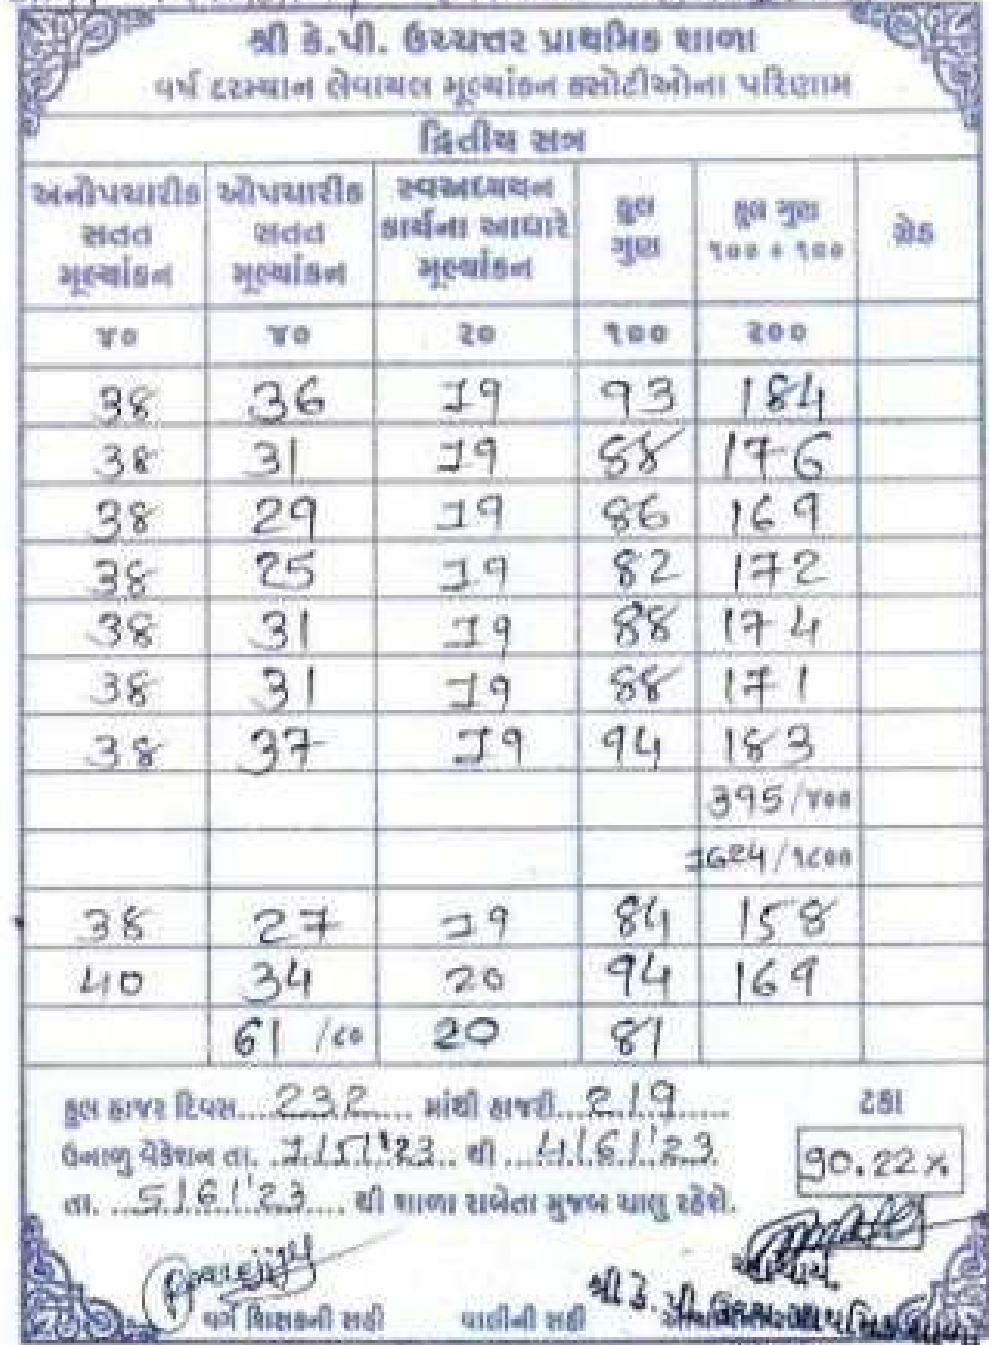 શ્રી કે.પી. ઉચ્ચત્તર પ્રાથમિક શાળા
વર્ષ દરમ્યાન લેવાયલ મૂલ્યાંકન કસોટીઓના પરિણામ
દ્વિતીય સત્ર
અનૌપચારીક સતત મૂલ્યાંકન ઔપચારીક સતત મૂલ્યાંકન સ્વઅધ્યયન કાર્યના આધારે મૂલ્યાંકન કુલ ગુણ કુલ ગુણ ૧૦૦ + ૧૦૦ ગ્રેડ
૪૦ ૪૦ ૨૦ ૧૦૦ ૨૦૦
38 36 19 93 184
38 31 19 88 176
38 29 19 86 169
38 25 19 82 172
38 31 19 88 174
38 31 19 88 171
38 37 19 94 183
395/૪૦૦
1624/૧૮૦૦
38 27 19 84 158
40 34 20 94 169
61 /૮૦ 20 81
કુલ હાજર દિવસ....232.... માંથી હાજરી...219..... ટકા
ઉનાળુ વેકેશન તા. ..1/5/'23.. થી ...4/6/'23 90.22%
તા. ...5/6/'23.... થી શાળા રાબેતા મુજબ ચાલુ રહેશે.
આચાર્ય
શ્રી કે. પી.
વર્ગ શિક્ષકની સહી વાલીની સહી